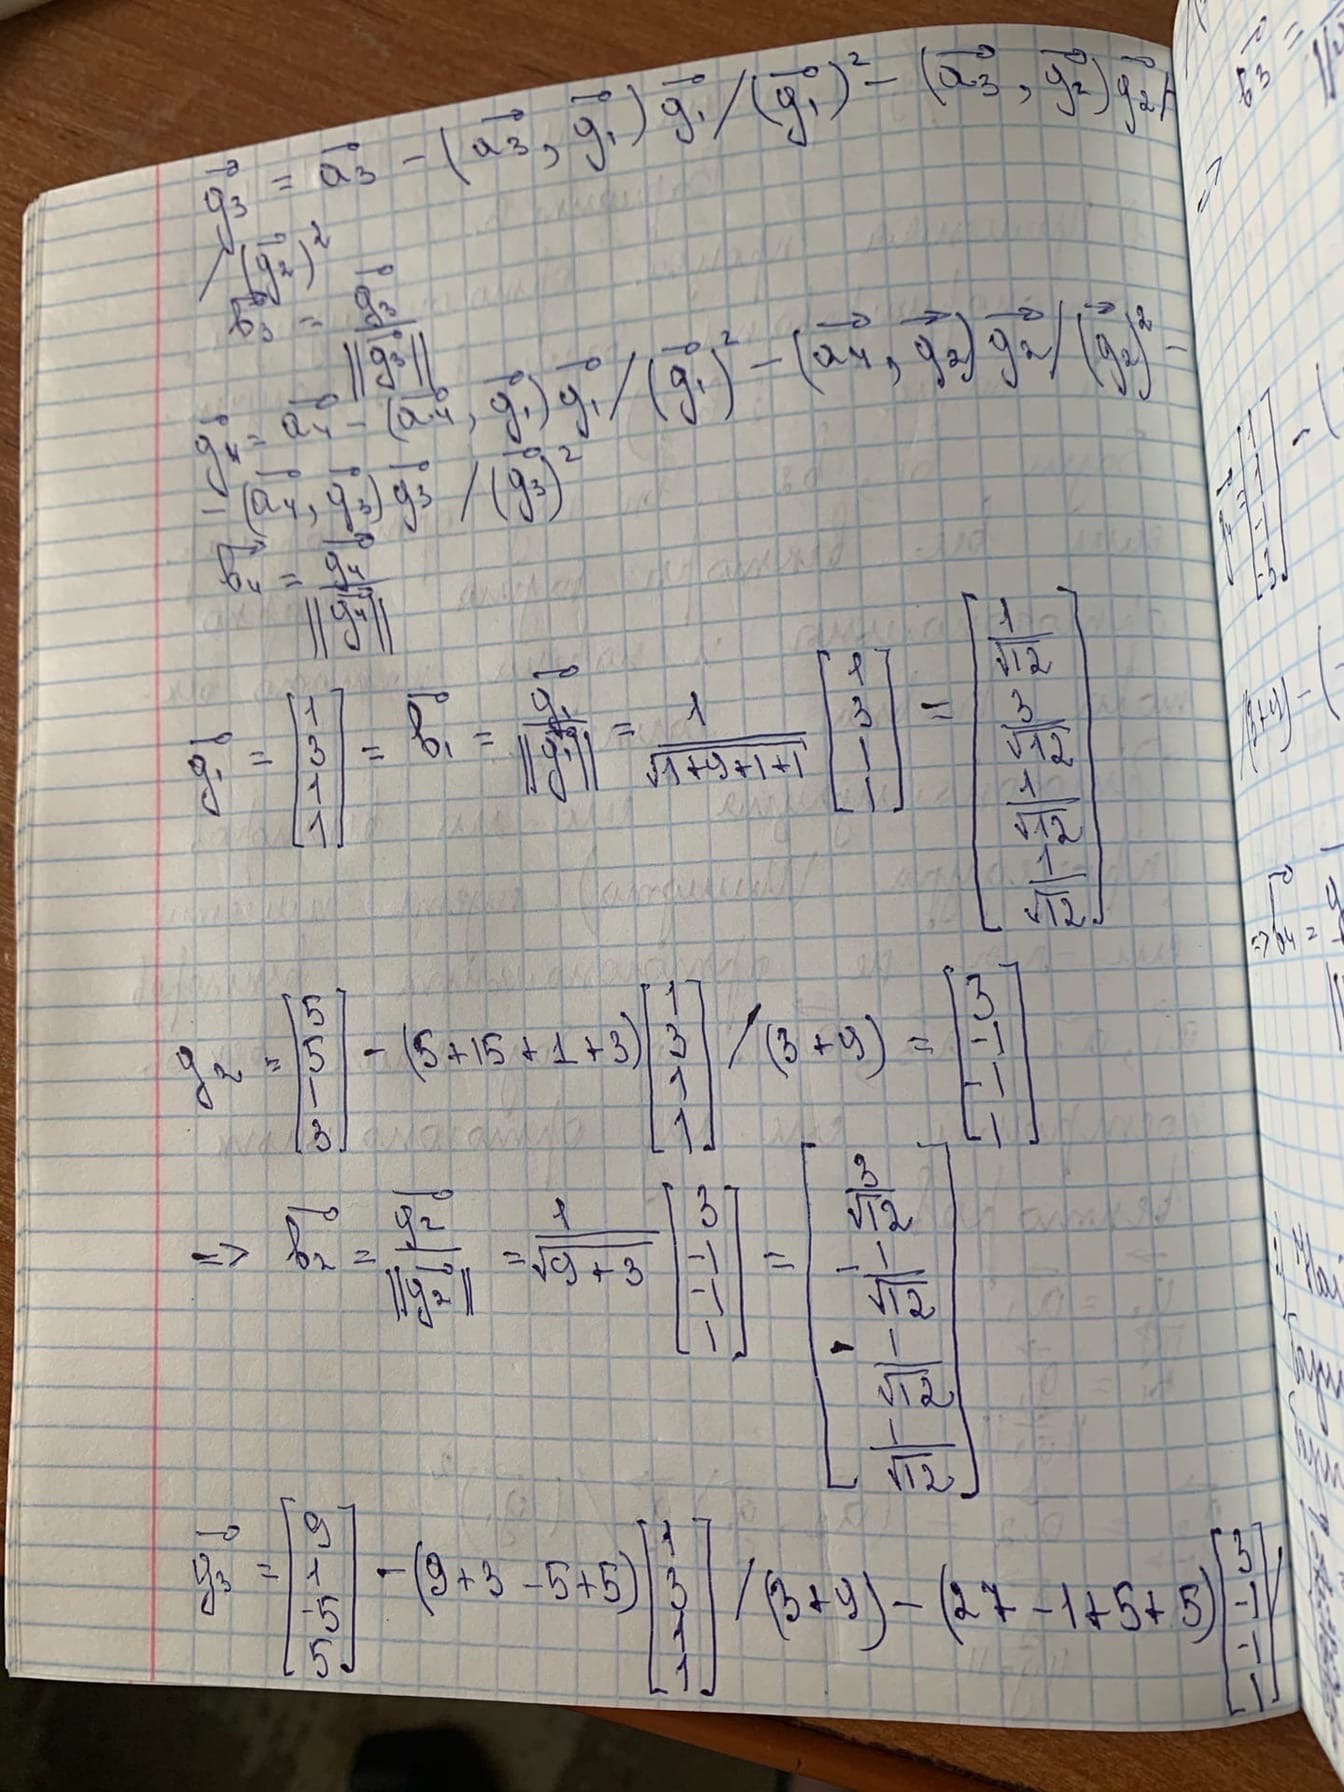 g⃗₃ = a⃗₃ - (a⃗₃, g⃗₁) g⃗₁ / (g⃗₁)² - (a⃗₃, g⃗₂) g⃗₂ /
/ (g⃗₂)²
b⃗₃ = g⃗₃ / ||g⃗₃||
g⃗₄ = a⃗₄ - (a⃗₄, g⃗₁) g⃗₁ / (g⃗₁)² - (a⃗₄, g⃗₂) g⃗₂ / (g⃗₂)² -
- (a⃗₄, g⃗₃) g⃗₃ / (g⃗₃)²
b⃗₄ = g⃗₄ / ||g⃗₄||
g⃗₁ = [1 3 1 1] = b⃗₁ = g⃗₁ / ||g⃗₁|| = 1 / √1+9+1+1 [1 3 1 1] = [1/√12 3/√12 1/√12 1/√12]
g₂ = [5 5 1 3] - (5+15+1+3) [1 3 1 1] / (3+9) = [3 -1 -1 1]
=> b⃗₂ = g⃗₂ / ||g⃗₂|| = 1 / √9+3 [3 -1 -1 1] = [3/√12 -1/√12 -1/√12 1/√12]
g⃗₃ = [9 1 -5 5] - (9+3-5+5) [1 3 1 1] / (3+9) - (27-1+5+5) [3 -1 -1 1] /
b⃗₃ =
=>
g⃗₄ = [1 1 -1 -3] -
/(3+9) - (
=> a⃗₄ =